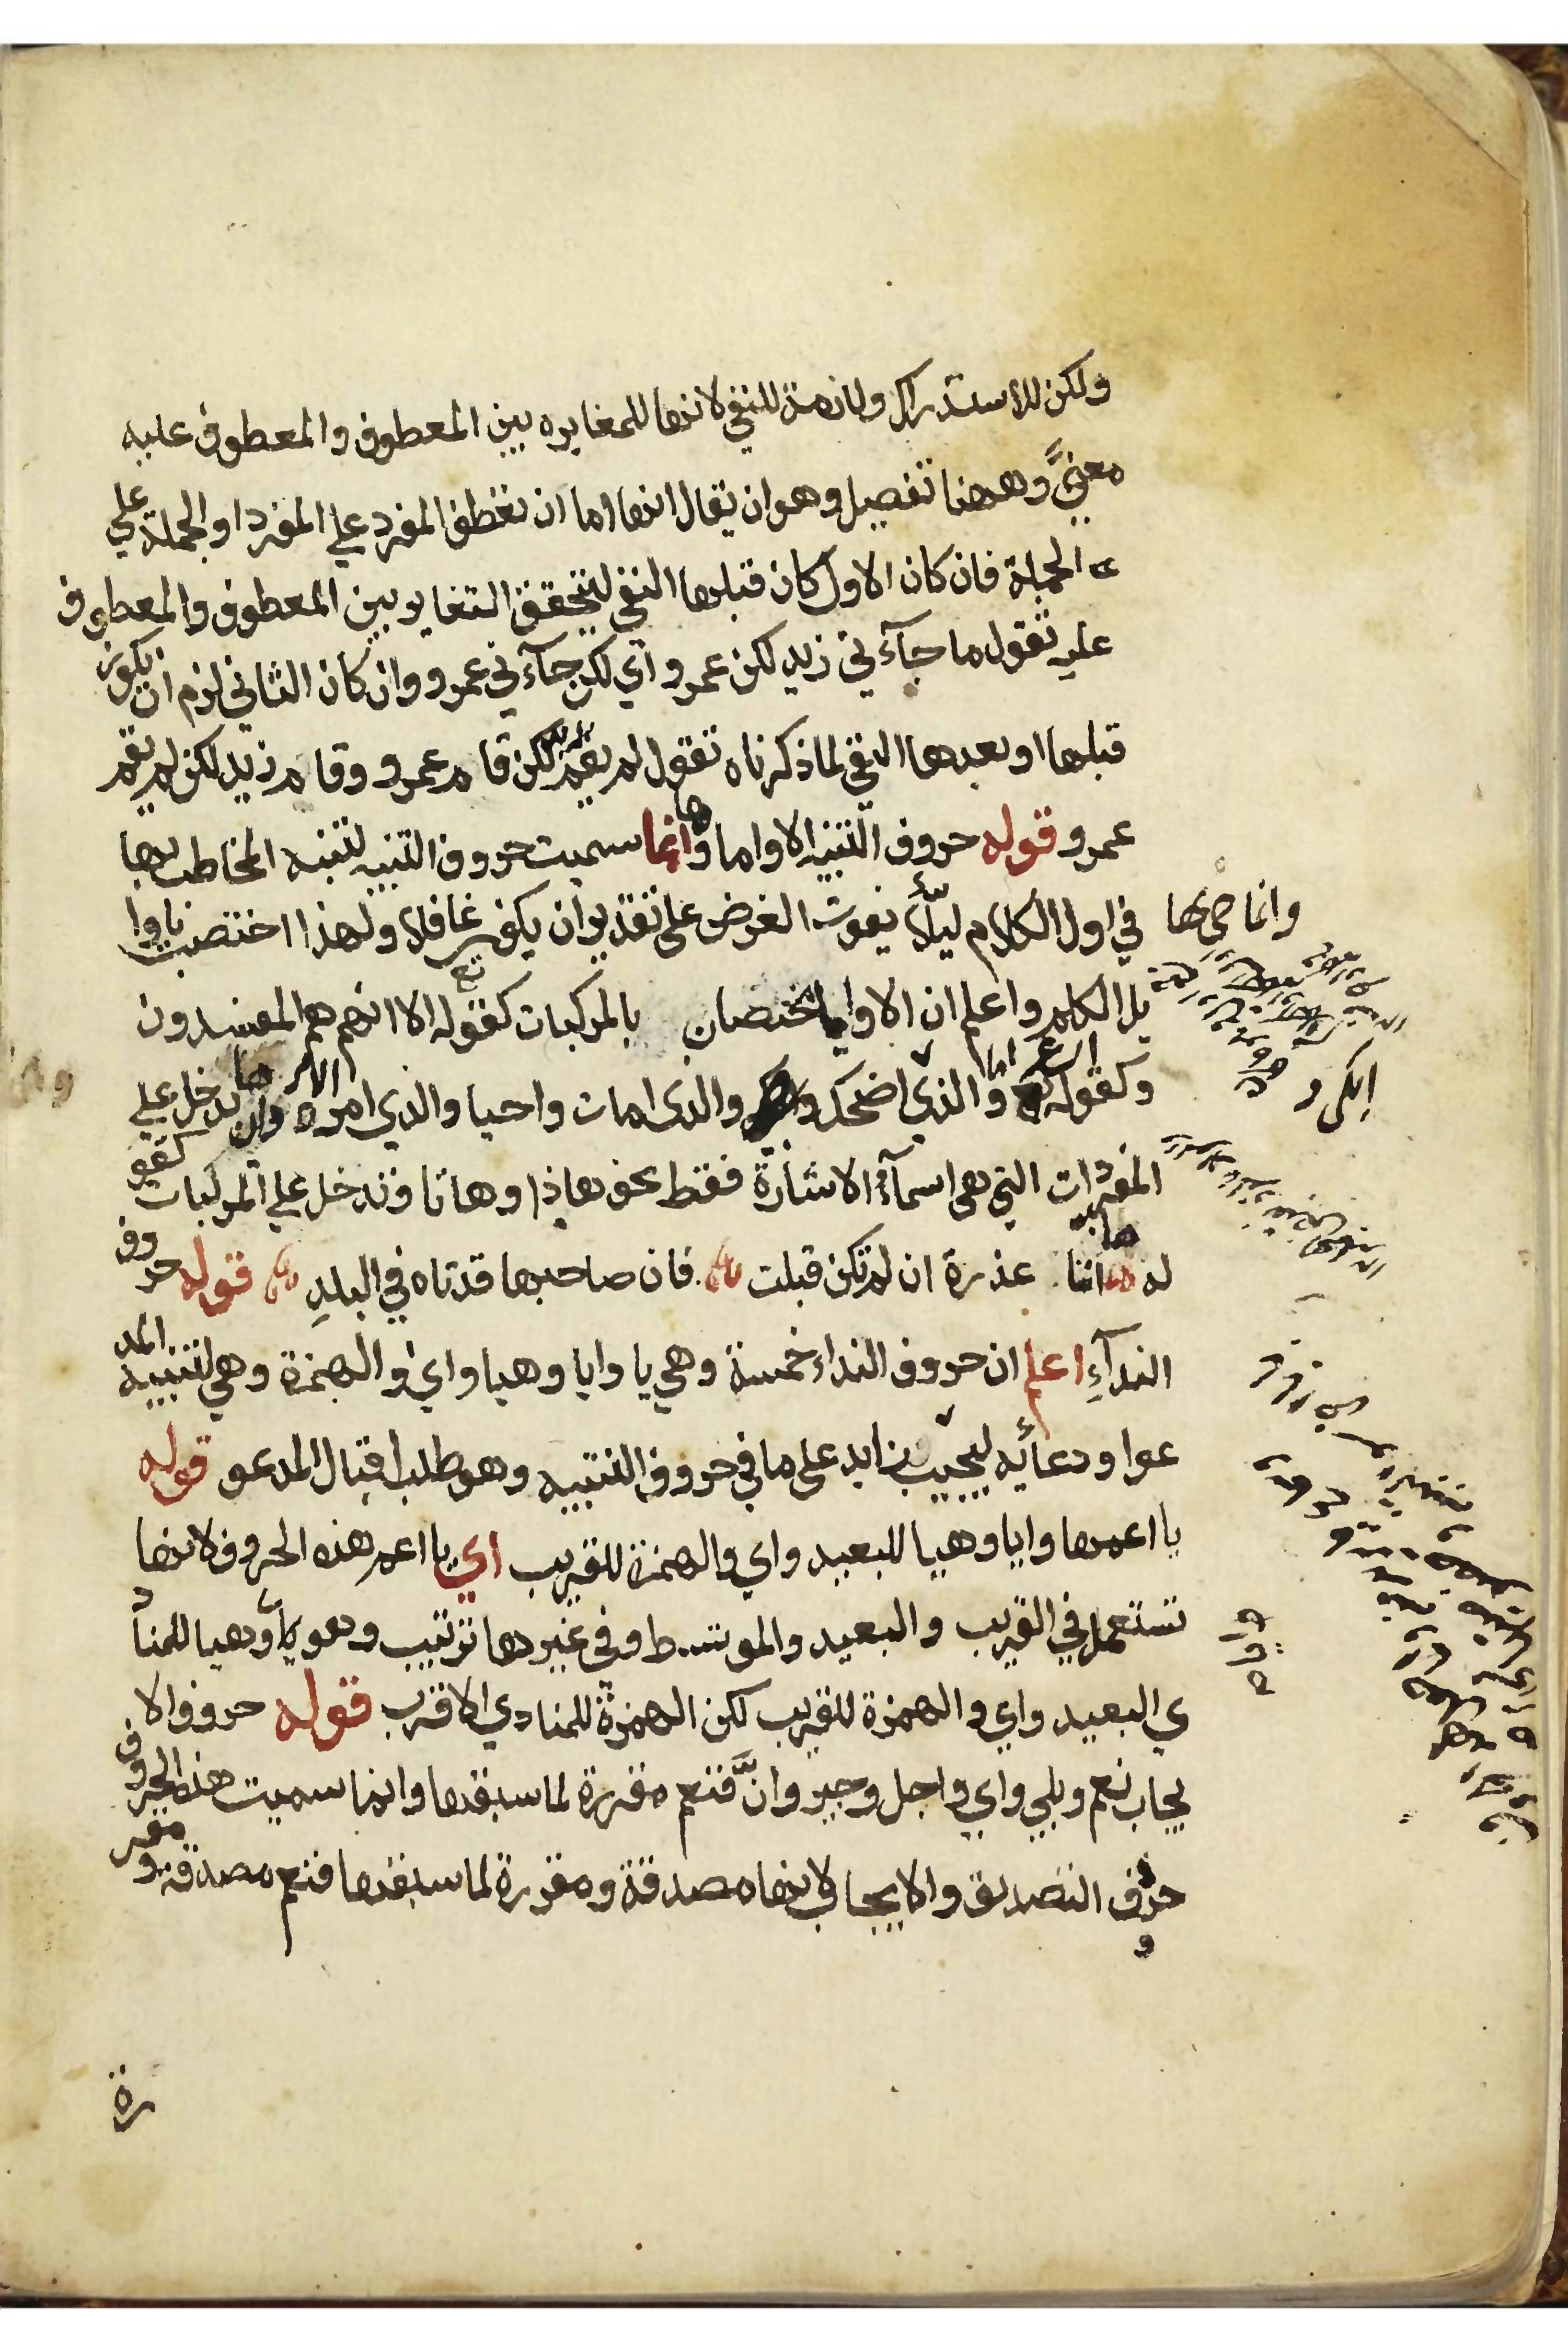 ولكن للاستدراك ولازمة للنفي لانها للمغايره بين المعطوف والمعطوف عليه
معنىً وههنا تفصيل وهو ان يقال انها اما ان تعطف المفرد علي المفرد او الجملة علي
الجملة فان كان الاول كان قبلها النفي ليتحقق التغاير بين المعطوف والمعطوف
عليه تقول ما جآءني زيد لكن عمرو اي لكن جآءني عمرو وان كان الثاني لزم ان يكون
قبلها او بعدها النفي لما ذكرناه تقول لم يقم زيد لكن قام عمرو وقام زيد لكن لم يقم
عمرو قوله حروف التنبيه الا واما وها وانما سميت حروف التنبيه لتنبه المخاطب بها
في اول الكلام ليلّا يفوت الغرض علي تقدير ان يكون غافلا ولهذا اختصت باوا
يل الكلم واعلم ان الا واما يختصان بالمركبات كقوله تع الا انهم هم المفسدون
وكقوله اما والذي اضحك والذي امات واحيا والذي امره الامر وها يدخل علي
المفردات التي هي اسمآء الاشارة فقط نحو هاذا وهاتا وتدخل علي المركبات كقو
له ها انا عذرة ان لم تكن قبلت فان صاحبها قد تاه في البلدِ قوله حروف
الندآءِ اعلم ان حروف النداء خمسة وهي يا وايا وهيا واي والهمزة وهي لتنبيه المد
عوا ودعائه ليجيب زايد علي ما في حروف التنبيه وهو طلب اقبال المدعو قوله
يا اعمها وايا وهيا للبعيد واي والهمزة للقريب اي يا اعم هذه الحروف لانها
تستعمل في القريب والبعيد والموتسط وفي غيرها ترتيب وهو يا وهيا للمنا
دي البعيد واي والهمزة للقريب لكن الهمزة للمنادي الاقرب قوله حروف الا
يجاب نعم وبلي واي واجل وجير وانَّ فنعم مقررة لما سبقها وانما سميت هذه الحروف
حروف التصديق والايجاب لانها مصدقة ومقررة لما سبقها فنعم مصدقة ومقر
رة